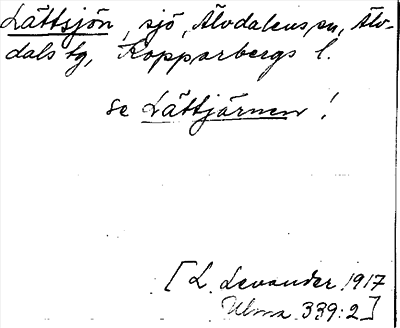 Lättsjön, sjö, Älvdalens sn, Älv-
dals tg, Kopparbergs l.
se Lättjärnen!
[L. Levander 1917
Ulma 339:2]